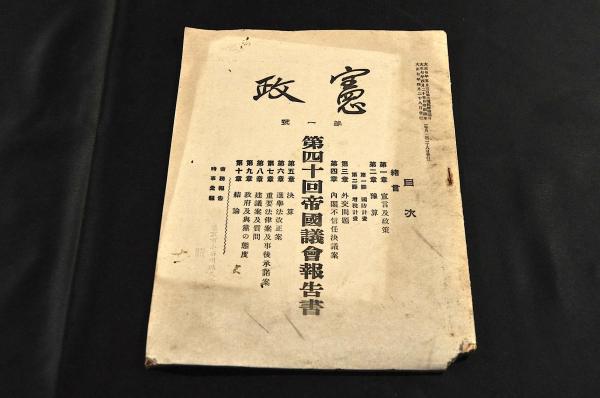 憲政
第一號
目次
緒言
第一章 宣言及政策
第二章 豫算
第一節 國防計畫
第二節 增稅計畫
第三章 外交問題
第四章 內閣不信任決議案
第四十回帝國議會報告書
第五章 決算
第六章 選擧法改正案
第七章 重要法律案及事後承諾案
第八章 建議案及質問
第九章 政府及與黨の態度
第十章 結論
會務報告
時事彙報